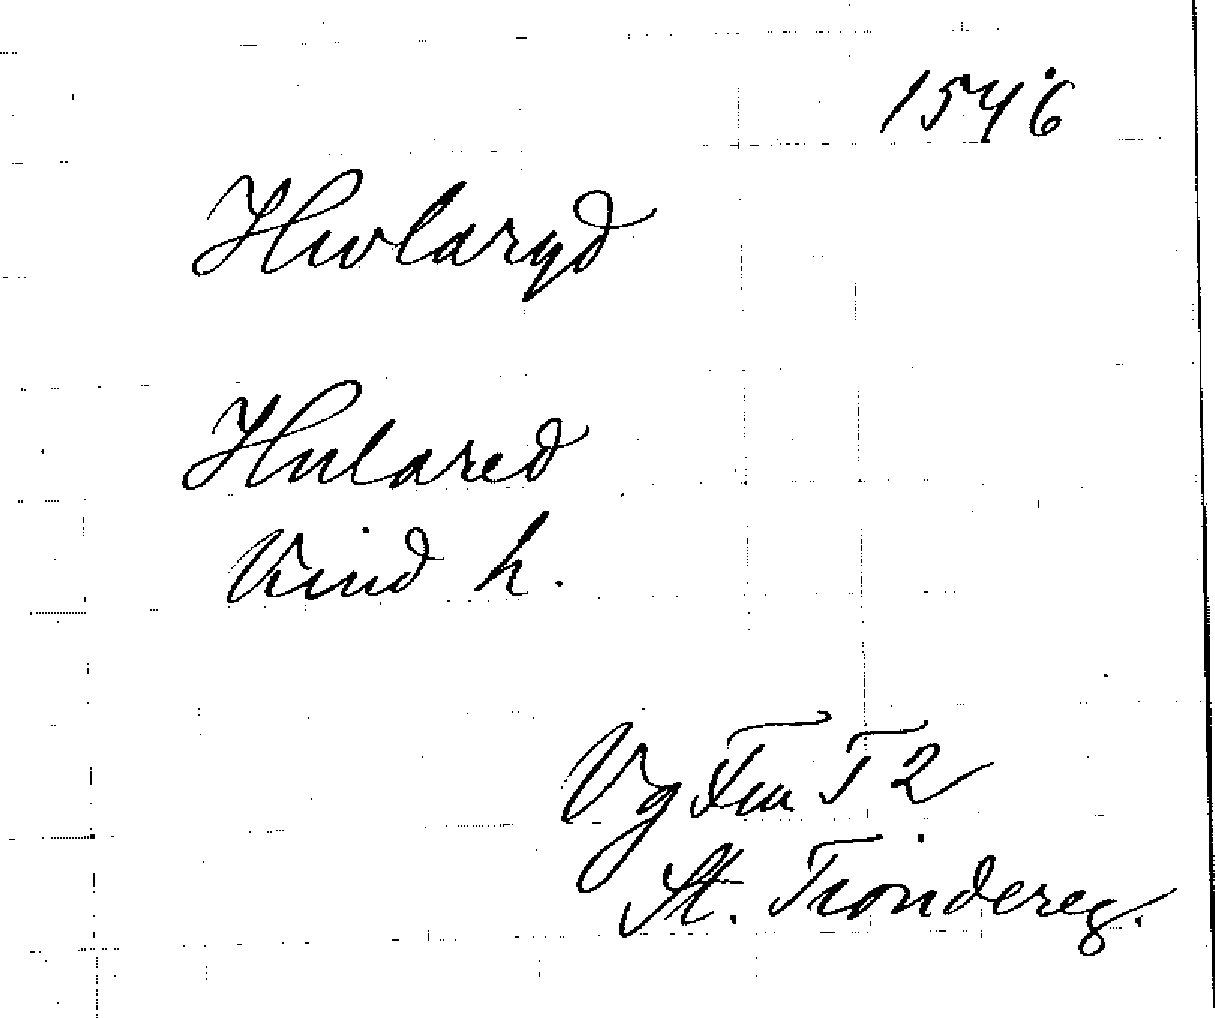 1546
Hwlaryd
Hulared
Kind h.
Vg T 2
St. Tiondereg.